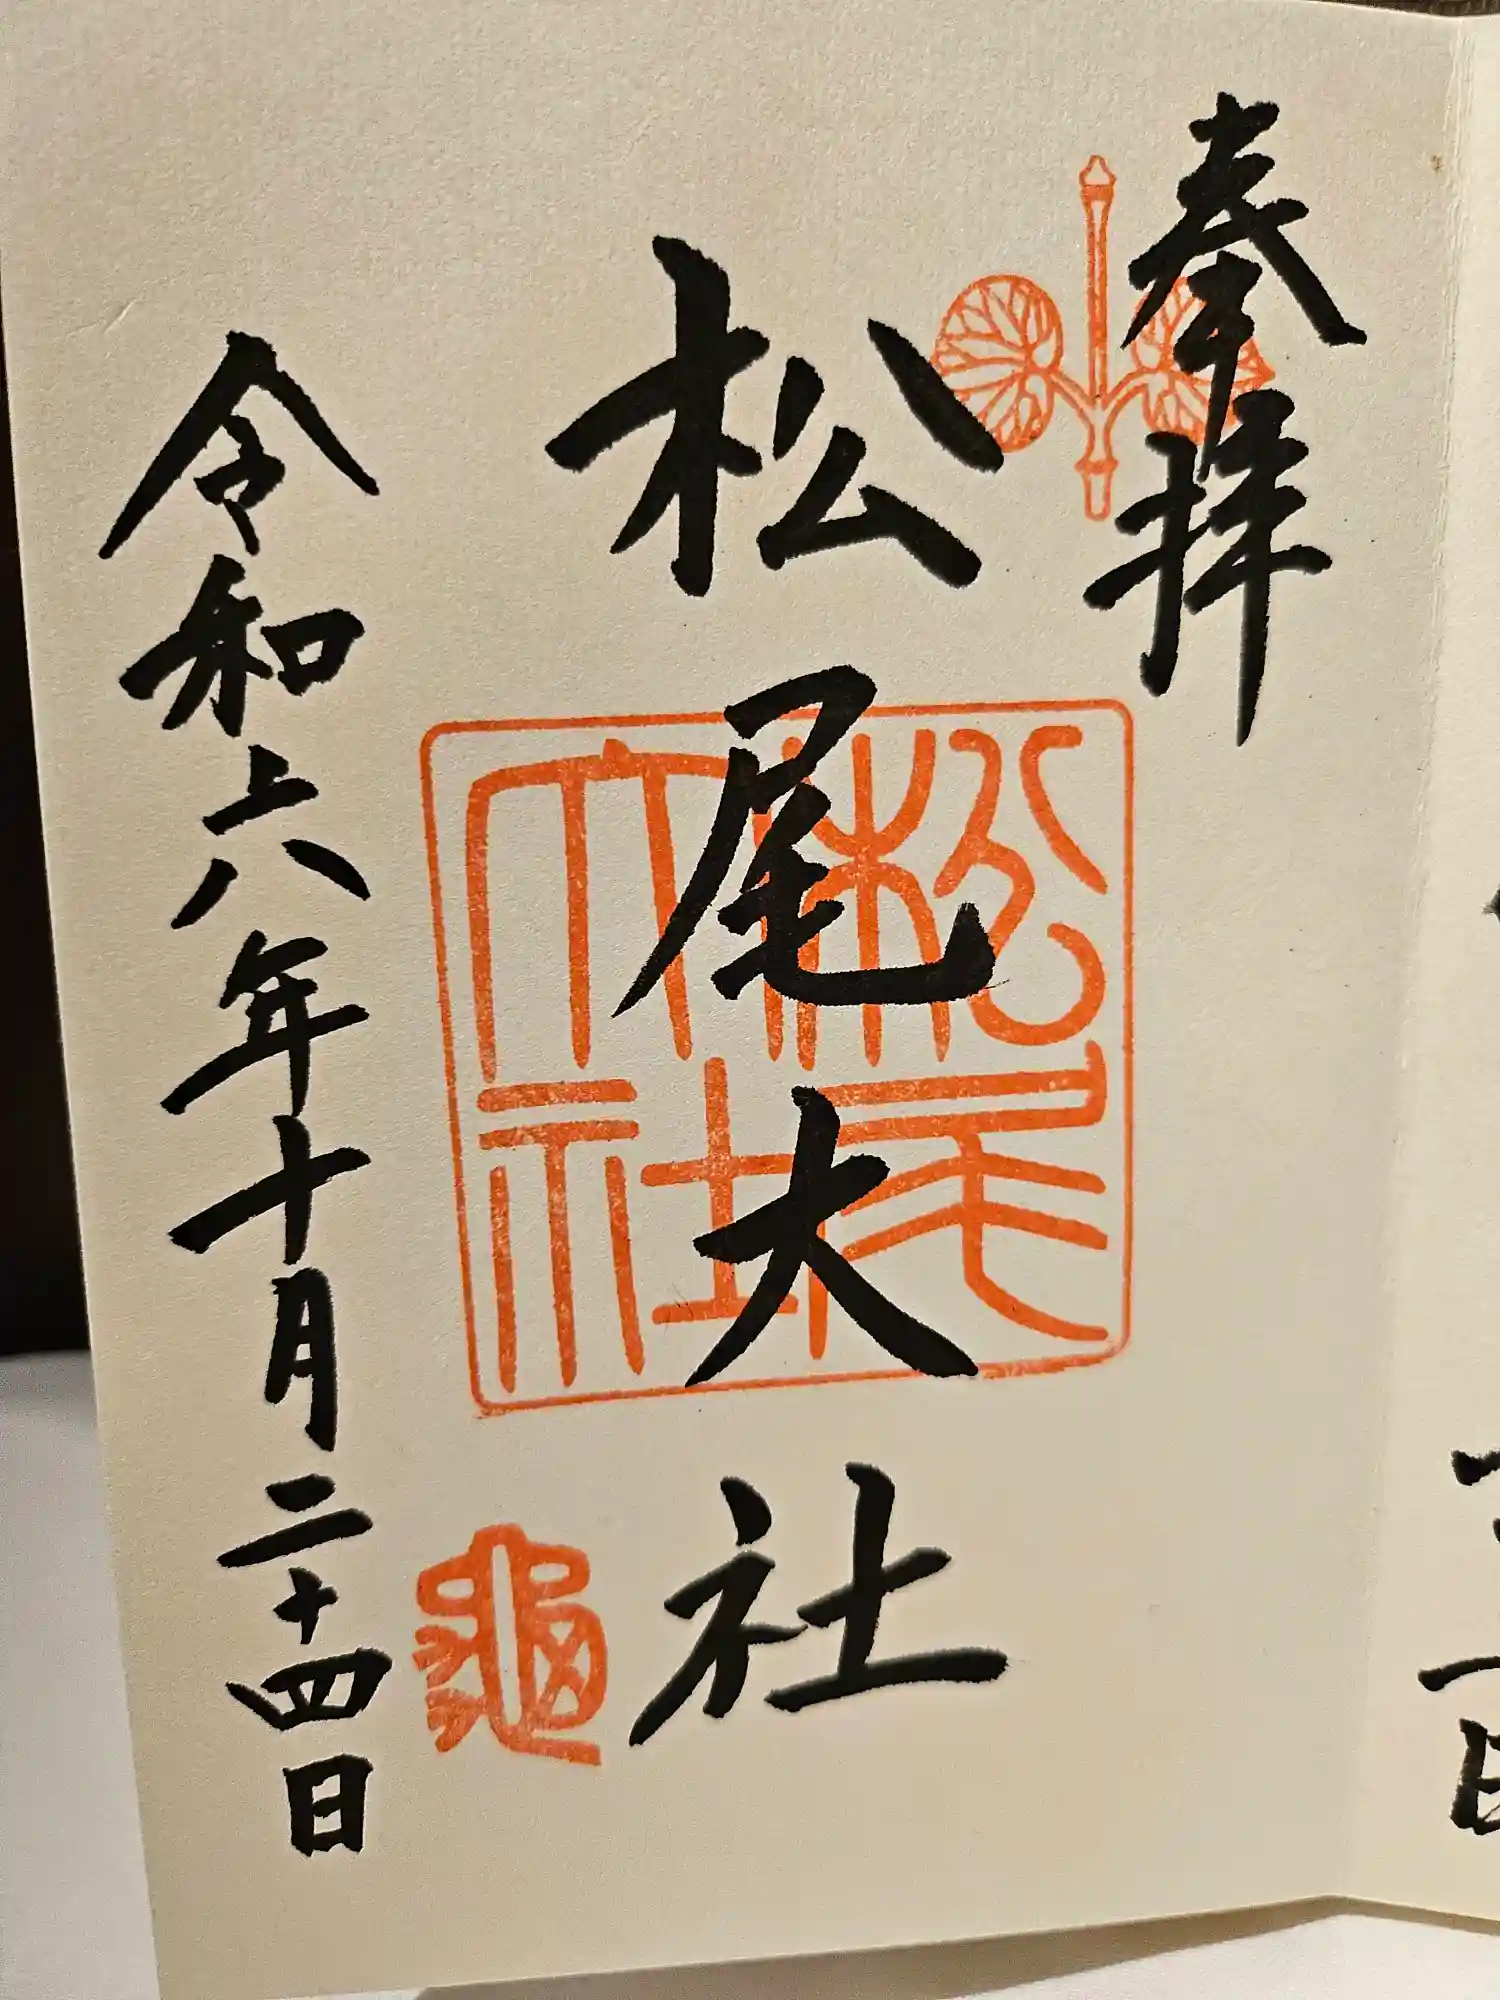 奉拝
松尾大社
松尾大社
亀
令和六年十月二十四日